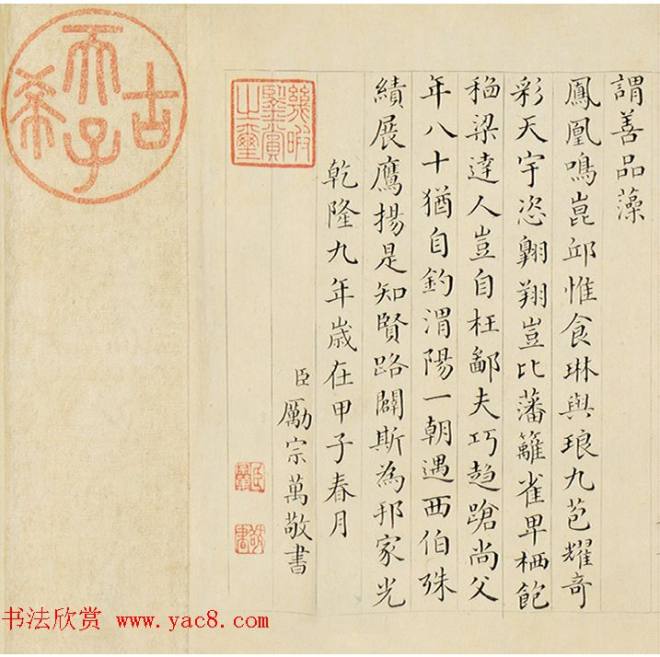 謂善品藻
鳳凰鳴崑邱惟食琳與琅九苞耀奇
彩天宇恣翱翔豈比藩籬雀卑栖飽
稻梁達人豈自枉鄙夫巧趨蹌尚父
年八十猶自釣渭陽一朝遇西伯殊
績展鷹揚是知賢路闢斯為邦家光
乾隆九年歲在甲子春月
臣勵宗萬敬書
幾暇鑒賞之璽
古希天子
书法欣赏 www.yac8.com